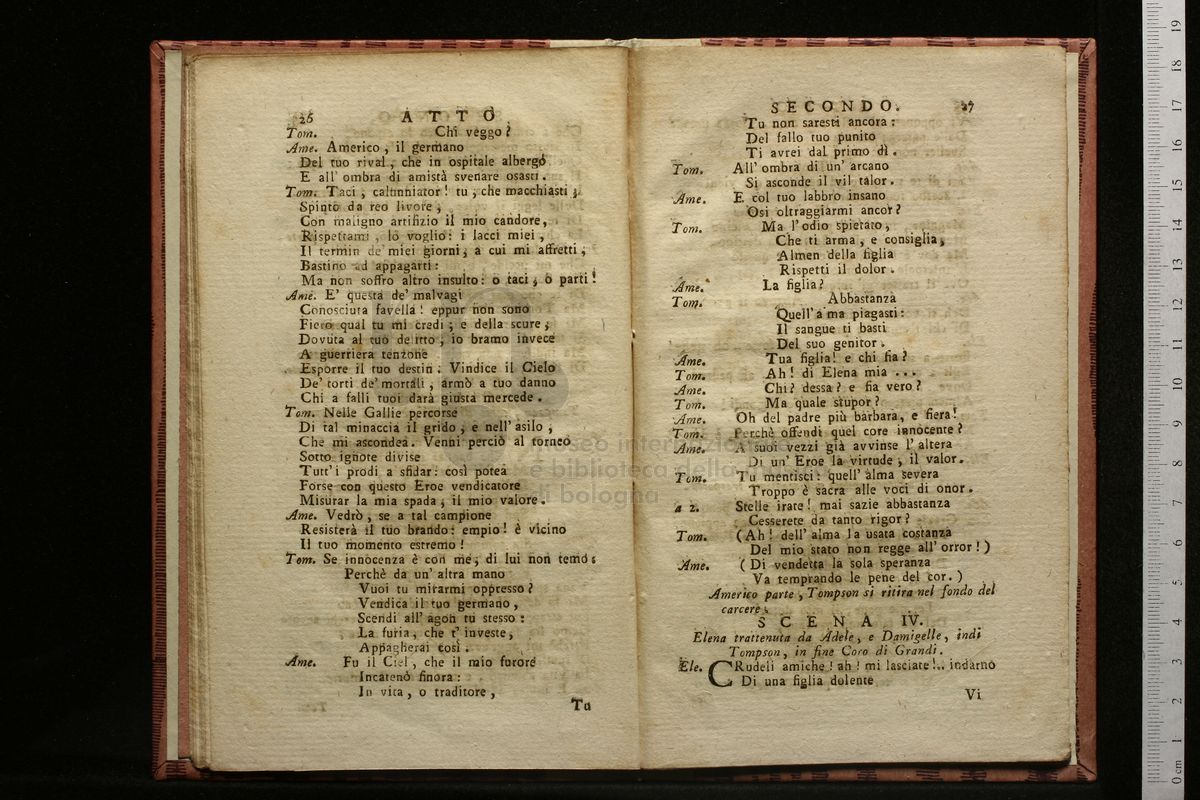 26 ATTO
Tom. Chi veggo?
Ame. Americo, il germano
Del tuo rival, che in ospitale albergo
E all' ombra di amistà svenare osasti.
Tom. Taci, calunniator! tu, che macchiasti,
Spinto da reo livore,
Con maligno artifizio il mio candore,
Rispettami, lo voglio: i lacci miei,
Il termin de' miei giorni, a cui mi affretti,
Bastino ad appagarti:
Ma non soffro altro insulto: o taci, o parti!
Ame. E' questa de' malvagi
Conosciuta favella! eppur non sono
Fiero qual tu mi credi; e della scure,
Dovuta al tuo delitto, io bramo invece
A guerriera tenzone
Esporre il tuo destin. Vindice il Cielo
De' torti de' mortali, armò a tuo danno
Chi a falli tuoi darà giusta mercede.
Tom. Nelle Gallie percorse
Di tal minaccia il grido, e nell' asilo,
Che mi ascondea. Venni perciò al torneo
Sotto ignote divise
Tutt' i prodi a sfidar: così potea
Forse con questo Eroe vendicatore
Misurar la mia spada, il mio valore.
Ame. Vedrò, se a tal campione
Resisterà il tuo brando: empio! è vicino
Il tuo momento estremo!
Tom. Se innocenza è con me, di lui non temo:
Perchè da un' altra mano
Vuoi tu mirarmi oppresso?
Vendica il tuo germano,
Scendi all' agon tu stesso:
La furia, che t' investe,
Appagherai così.
Ame. Fu il Ciel, che il mio furore
Incatenò finora:
In vita, o traditore,
Tu
SECONDO. 27
Tu non saresti ancora:
Del fallo tuo punito
Ti avrei dal primo dì.
Tom. All' ombra di un' arcano
Si asconde il vil talor.
Ame. E col tuo labbro insano
Osi oltraggiarmi ancor?
Tom. Ma l' odio spietato,
Che ti arma, e consiglia,
Almen della figlia
Rispetti il dolor.
Ame. La figlia?
Tom. Abbastanza
Quell' alma piagasti:
Il sangue ti basti
Del suo genitor.
Ame. Tua figlia! e chi fia?
Tom. Ah! di Elena mia ...
Ame. Chi? dessa? e fia vero?
Tom. Ma quale stupor?
Ame. Oh del padre più barbara, e fiera!
Tom. Perchè offendi quel core innocente?
Ame. A suoi vezzi già avvinse l' altera
Di un' Eroe la virtude, il valor.
Tom. Tu mentisci: quell' alma severa
Troppo è sacra alle voci di onor.
a 2. Stelle irate! mai sazie abbastanza
Cesserete da tanto rigor?
Tom. (Ah! dell' alma la usata costanza
Del mio stato non regge all' orror!)
Ame. (Di vendetta la sola speranza
Va temprando le pene del cor.)
Americo parte, Tompson si ritira nel fondo del
carcere.
SCENA IV.
Elena trattenuta da Adele, e Damigelle, indi
Tompson, in fine Coro di Grandi.
Ele. CRudeli amiche! ah! mi lasciate!.. indarno
Di una figlia dolente
Vi
museo internazionale
e biblioteca della musica
di bologna
0 cm 1 2 3 4 5 6 7 8 9 10 11 12 13 14 15 16 17 18 19